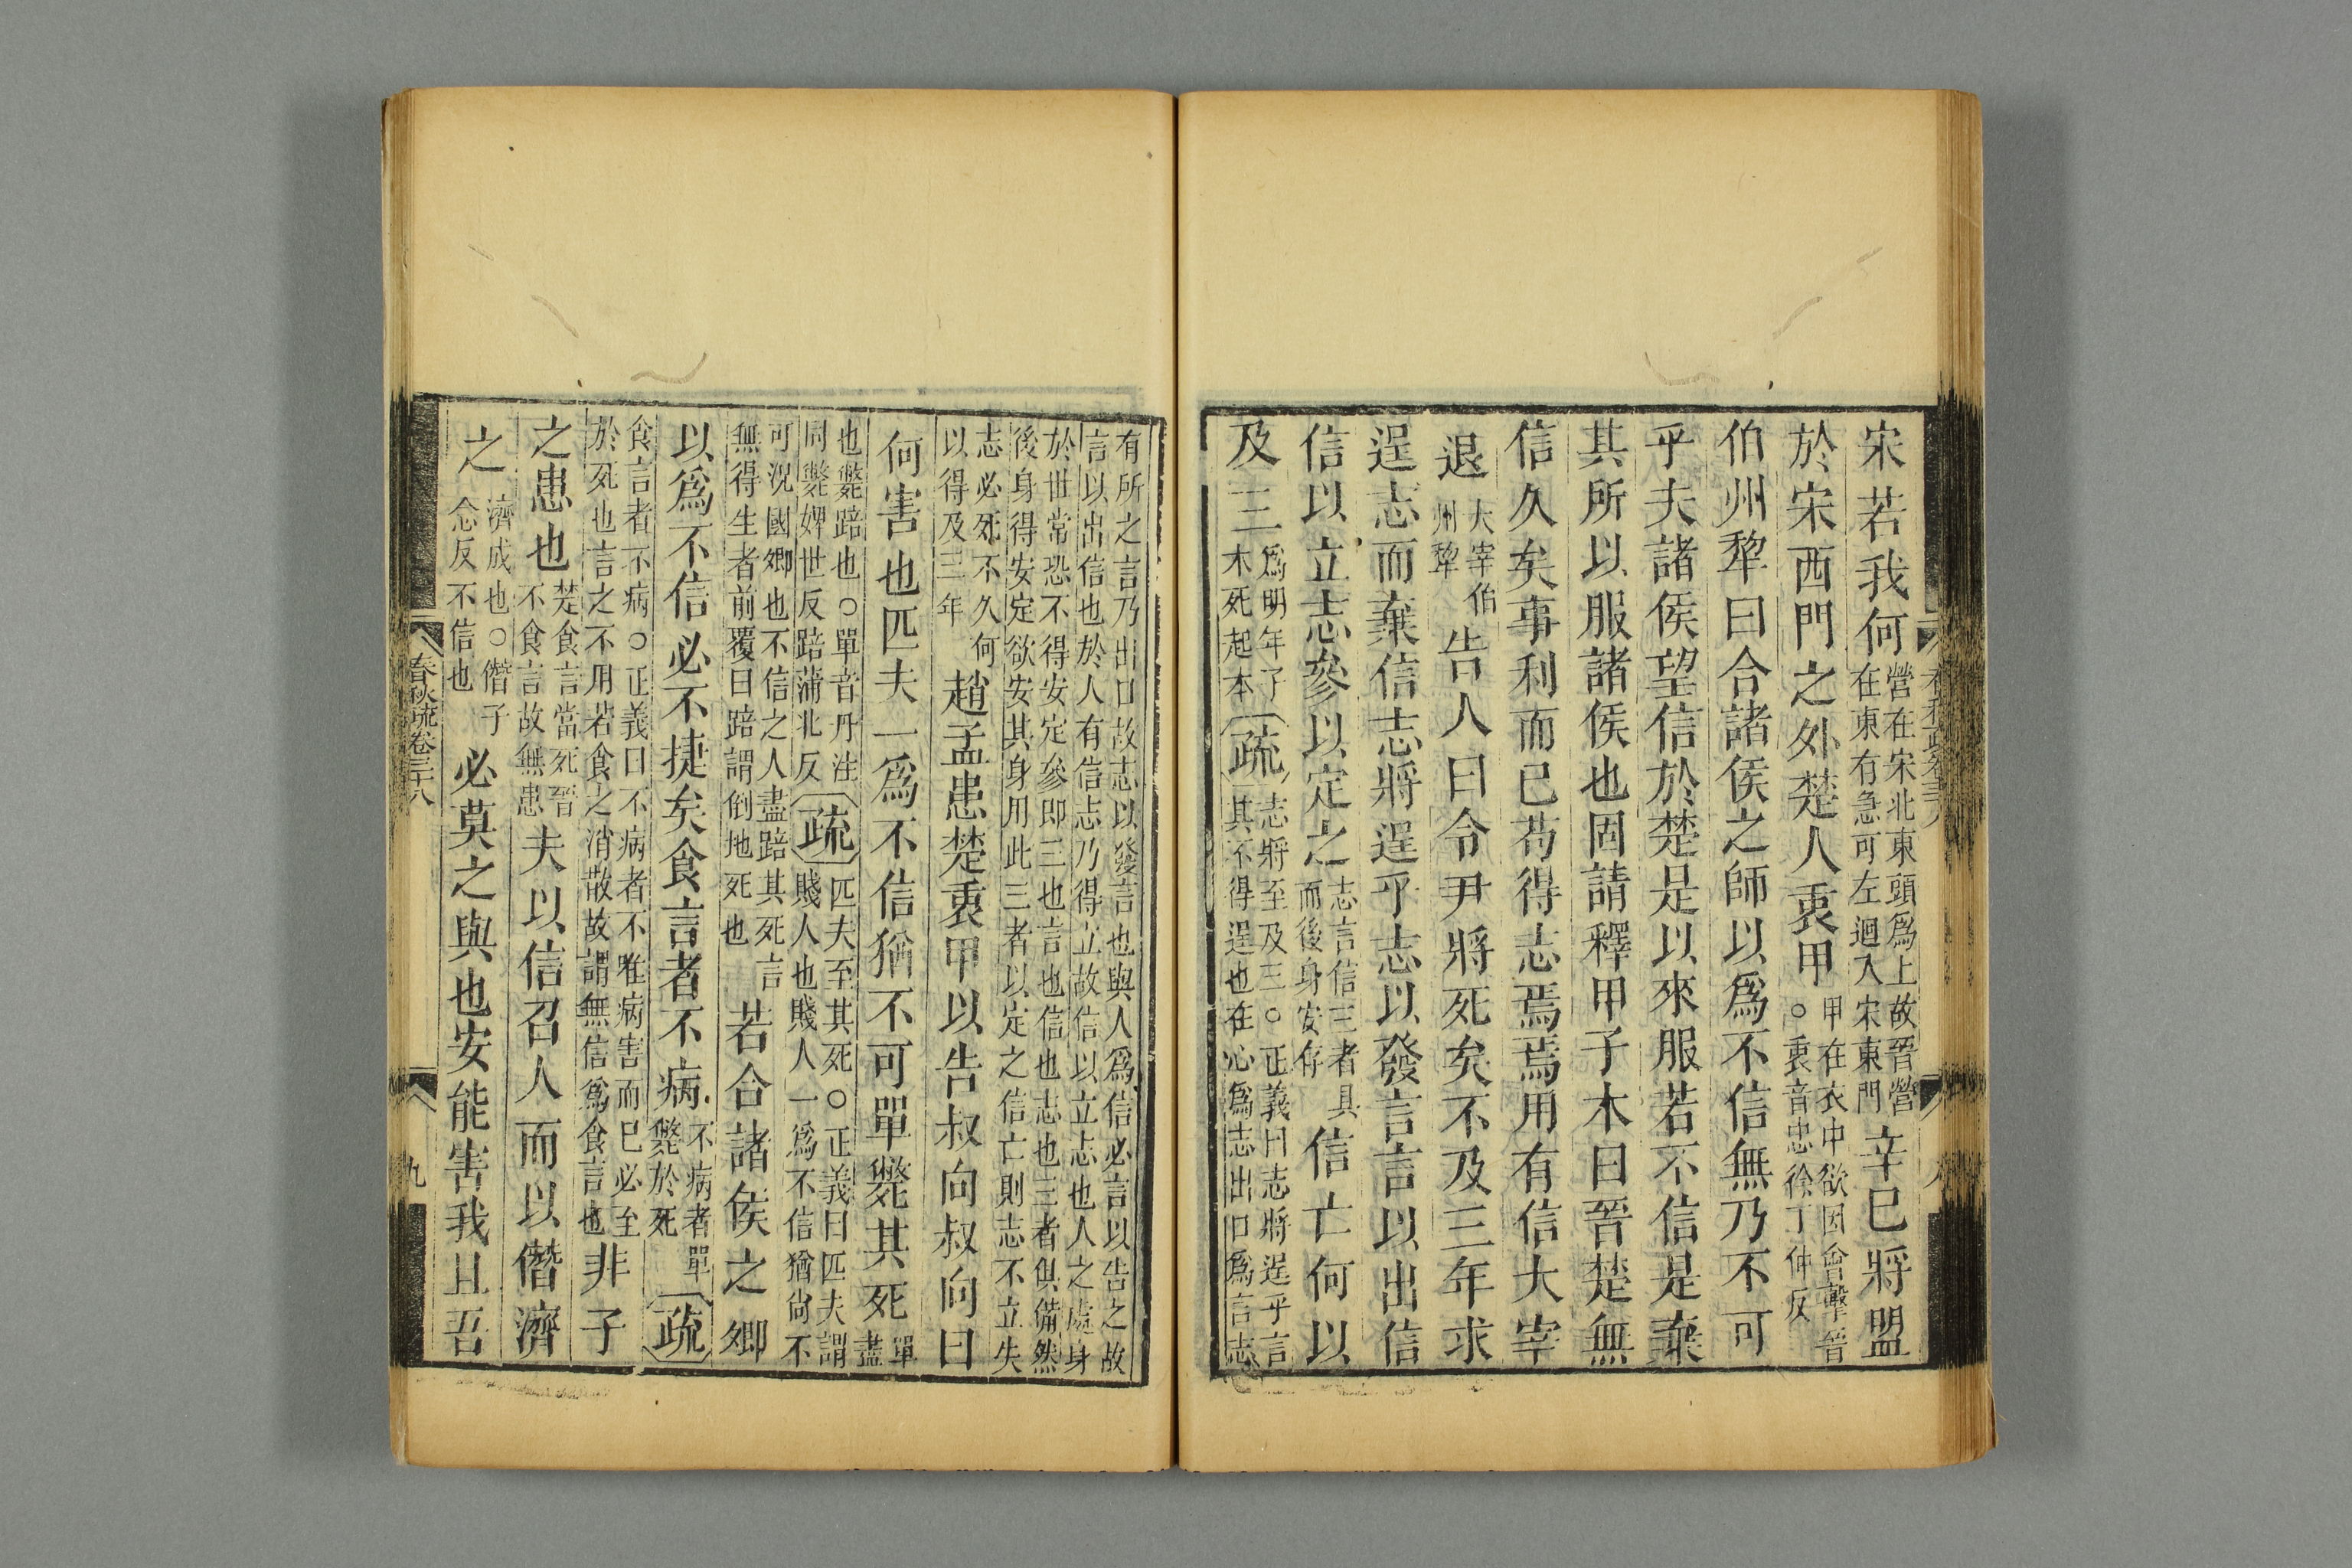 宋若我何營在宋北東頭爲上故晉營在東有急可左迴入宋東門辛巳將盟
於宋西門之外楚人衷甲甲在衣中欲因會擊晉○衷音忠徐丁仲反
伯州犂曰合諸侯之師以爲不信無乃不可
乎夫諸侯望信於楚是以來服若不信是棄
其所以服諸侯也固請釋甲子木曰晉楚無
信久矣事利而已苟得志焉焉用有信大宰
退大宰伯州犂告人曰令尹將死矣不及三年求
逞志而棄信志將逞乎志以發言言以出信
信以立志參以定之志言信三者具而後身安存信亡何以
及三爲明年子木死起本疏志將至及三○正義曰志將逞乎言其不得逞也在心爲志出口爲言志
有所之言乃出口故志以發言也與人爲信必言以告之故
言以出信也於人有信志乃得立故信以立志也人之處身
於世常恐不得安定參即三也言也信也志也三者俱備然
後身得安定欲安其身用此三者以定之信亡則志不立失
志必死不久何以得及三年趙孟患楚衷甲以告叔向叔向曰
何害也匹夫一爲不信猶不可單斃其死單盡
也斃踣也○單音丹注同斃婢世反踣蒲北反疏匹夫至其死○正義曰匹夫謂賤人也賤人一爲不信猶尙不
可況國卿也不信之人盡踣其死言無得生者前覆曰踣謂倒地死也若合諸侯之卿
以爲不信必不捷矣食言者不病不病者單斃於死疏
食言者不病○正義曰不病者不唯病害而已必至於死也言之不用若食之消散故謂無信爲食言也非子
之患也楚食言當死晉不食言故無患夫以信召人而以僭濟
之濟成也○僭子念反不信也必莫之與也安能害我且吾
春秋疏卷三十八
九